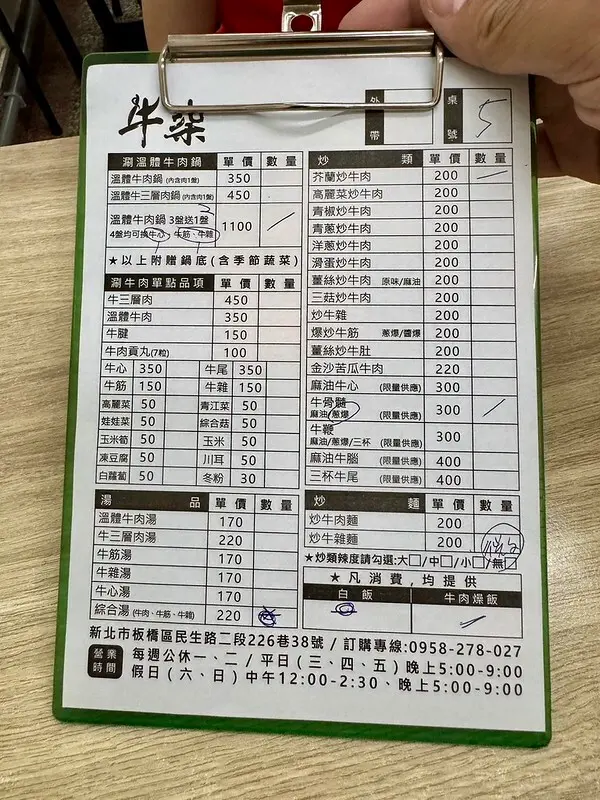 牛柒
外帶
桌號 5
涮溫體牛肉鍋 單價 數量
溫體牛肉鍋 (內含肉1盤) 350
溫體牛三層肉鍋 (內含肉1盤) 450
溫體牛肉鍋 3盤送1盤
4盤均可換牛心、牛筋、牛雜 1100
★以上附贈鍋底(含季節蔬菜)
涮牛肉單點品項 單價 數量
牛三層肉 450
溫體牛肉 350
牛腱 150
牛肉貢丸(7粒) 100
牛心 350 牛尾 350
牛筋 150 牛雜 150
高麗菜 50 青江菜 50
娃娃菜 50 綜合菇 50
玉米筍 50 玉米 50
凍豆腐 50 川耳 50
白蘿蔔 50 冬粉 30
湯品 單價 數量
溫體牛肉湯 170
牛三層肉湯 220
牛筋湯 170
牛雜湯 170
牛心湯 170
綜合湯 (牛肉、牛筋、牛雜) 220
炒類 單價 數量
芥蘭炒牛肉 200
高麗菜炒牛肉 200
青椒炒牛肉 200
青蔥炒牛肉 200
洋蔥炒牛肉 200
滑蛋炒牛肉 200
薑絲炒牛肉 原味/麻油 200
三菇炒牛肉 200
炒牛雜 200
爆炒牛筋 蔥爆/醬爆 200
薑絲炒牛肚 200
金沙苦瓜牛肉 220
麻油牛心 (限量供應) 300
牛骨髓
麻油/蔥爆 (限量供應) 300
牛鞭
麻油/蔥爆/三杯 (限量供應) 300
麻油牛腦 (限量供應) 400
三杯牛尾 (限量供應) 400
炒麵 單價 數量
炒牛肉麵 200
炒牛雜麵 200
★炒類辣度請勾選:大□/中□/小□/無□
★凡消費,均提供
白飯 牛肉燥飯
新北市板橋區民生路二段226巷38號 / 訂購專線:0958-278-027
營業時間
每週公休一、二 / 平日(三、四、五)晚上5:00-9:00
假日(六、日)中午12:00-2:30、晚上5:00-9:00